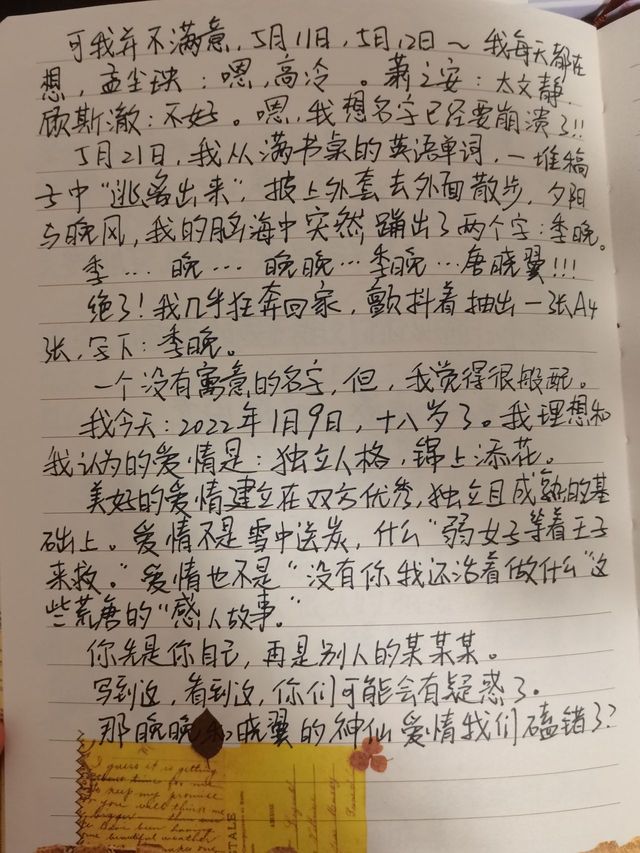 可我并不满意，5月11日，5月12日～ 我每天都在
想，孟尘玦：嗯，高冷。萧之安：太文静.
顾斯澈：不好。嗯，我想名字已经要崩溃了!!
5月21日，我从满书桌的英语单词，一堆稿
子中“逃离出来”，披上外套去外面散步，夕阳
与晚风，我的脑海中突然蹦出了两个字：季晚。
季…晚…晚晚…季晚…唐晓翼!!!
绝了！我几乎狂奔回家，颤抖着抽出一张A4
张，写下：季晚。
一个没有寓意的名字，但，我觉得很般配。
我今天：2022年1月9日，十八岁了。我理想和
我认为的爱情是：独立人格，锦上添花。
美好的爱情建立在双方优秀，独立且成熟的基
础上。爱情不是雪中送炭，什么“弱女子等着王子
来救。”爱情也不是“没有你我还活着做什么”这
些荒唐的“感人故事。”
你先是你自己，再是别人的某某某。
写到这，看到这，你们可能会有疑惑了。
那晚晚和晓翼的神仙爱情我们磕错了？
I guess it is getting